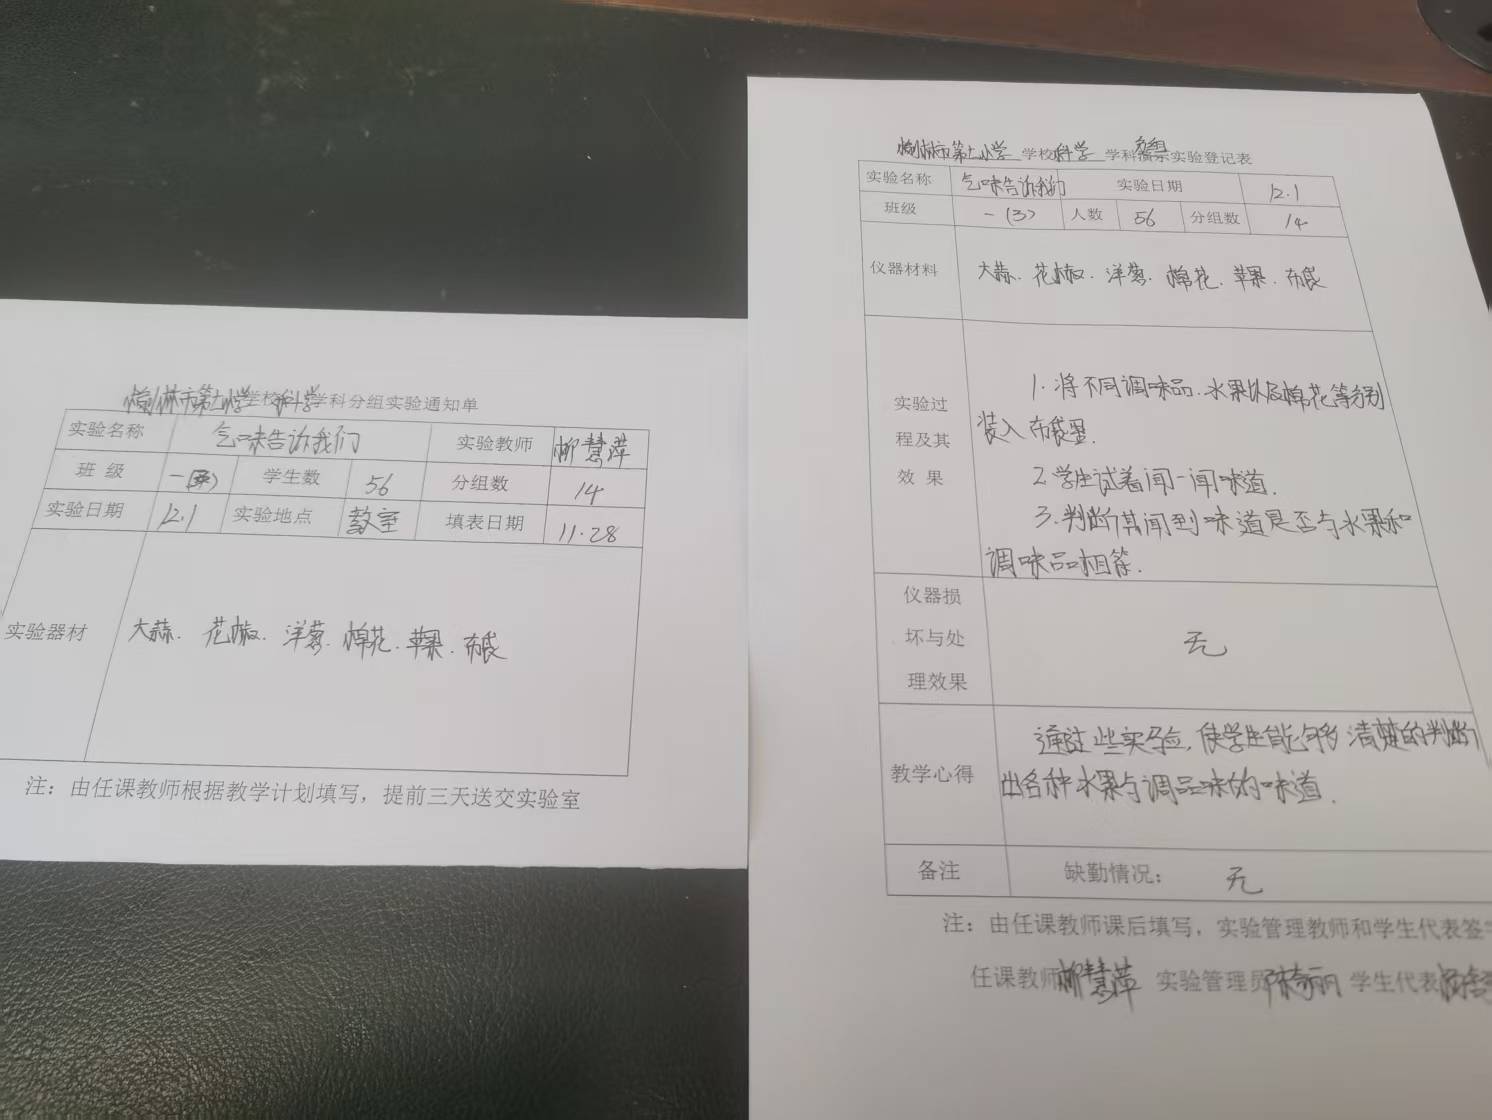 榆林市第十小学学校科学学科分组实验通知单
实验名称 气味告诉我们 实验教师 柳慧萍
班 级 一(3) 学生数 56 分组数 14
实验日期 12.1 实验地点 教室 填表日期 11.28
实验器材 大蒜. 花椒. 洋葱. 棉花. 苹果. 布袋
注：由任课教师根据教学计划填写，提前三天送交实验室
榆林市第十小学 学校科学 学科分组实验登记表
实验名称 气味告诉我们 实验日期 12.1
班级 一(3) 人数 56 分组数 14
仪器材料 大蒜. 花椒. 洋葱. 棉花. 苹果. 布袋
实验过
程及其
效 果
1. 将不同调味品.水果以及棉花等分别
装入布袋里.
2.学生试着闻一闻味道.
3.判断其闻到味道是否与水果和
调味品相符.
仪器损
坏与处
理效果
无
教学心得
通过些实验,使学生能够清楚的判断
出各种水果与调品味的味道.
备注 缺勤情况： 无
注：由任课教师课后填写，实验管理教师和学生代表签
任课教师柳慧萍 实验管理员 学生代表